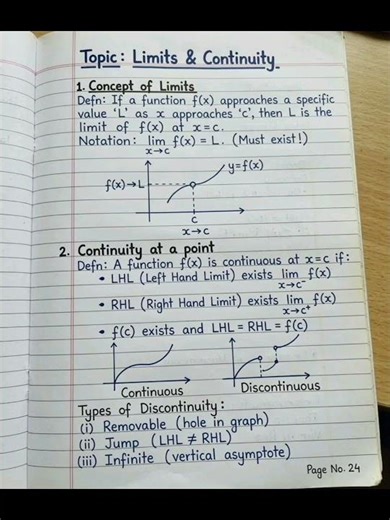 Topic: Limits & Continuity
1. Concept of Limits
Defn: If a function f(x) approaches a specific
value 'L' as x approaches 'c', then L is the
limit of f(x) at x=c.
Notation: lim f(x) = L. (Must exist!)
x→c
y=f(x)
f(x)→L
c
x→c
2. Continuity at a point
Defn: A function f(x) is continuous at x=c if:
• LHL (Left Hand Limit) exists lim f(x)
x→c⁻
• RHL (Right Hand Limit) exists lim f(x)
x→c⁺
• f(c) exists and LHL = RHL = f(c)
Continuous Discontinuous
Types of Discontinuity:
(i) Removable (hole in graph)
(ii) Jump (LHL ≠ RHL)
(iii) Infinite (vertical asymptote)
Page No. 24